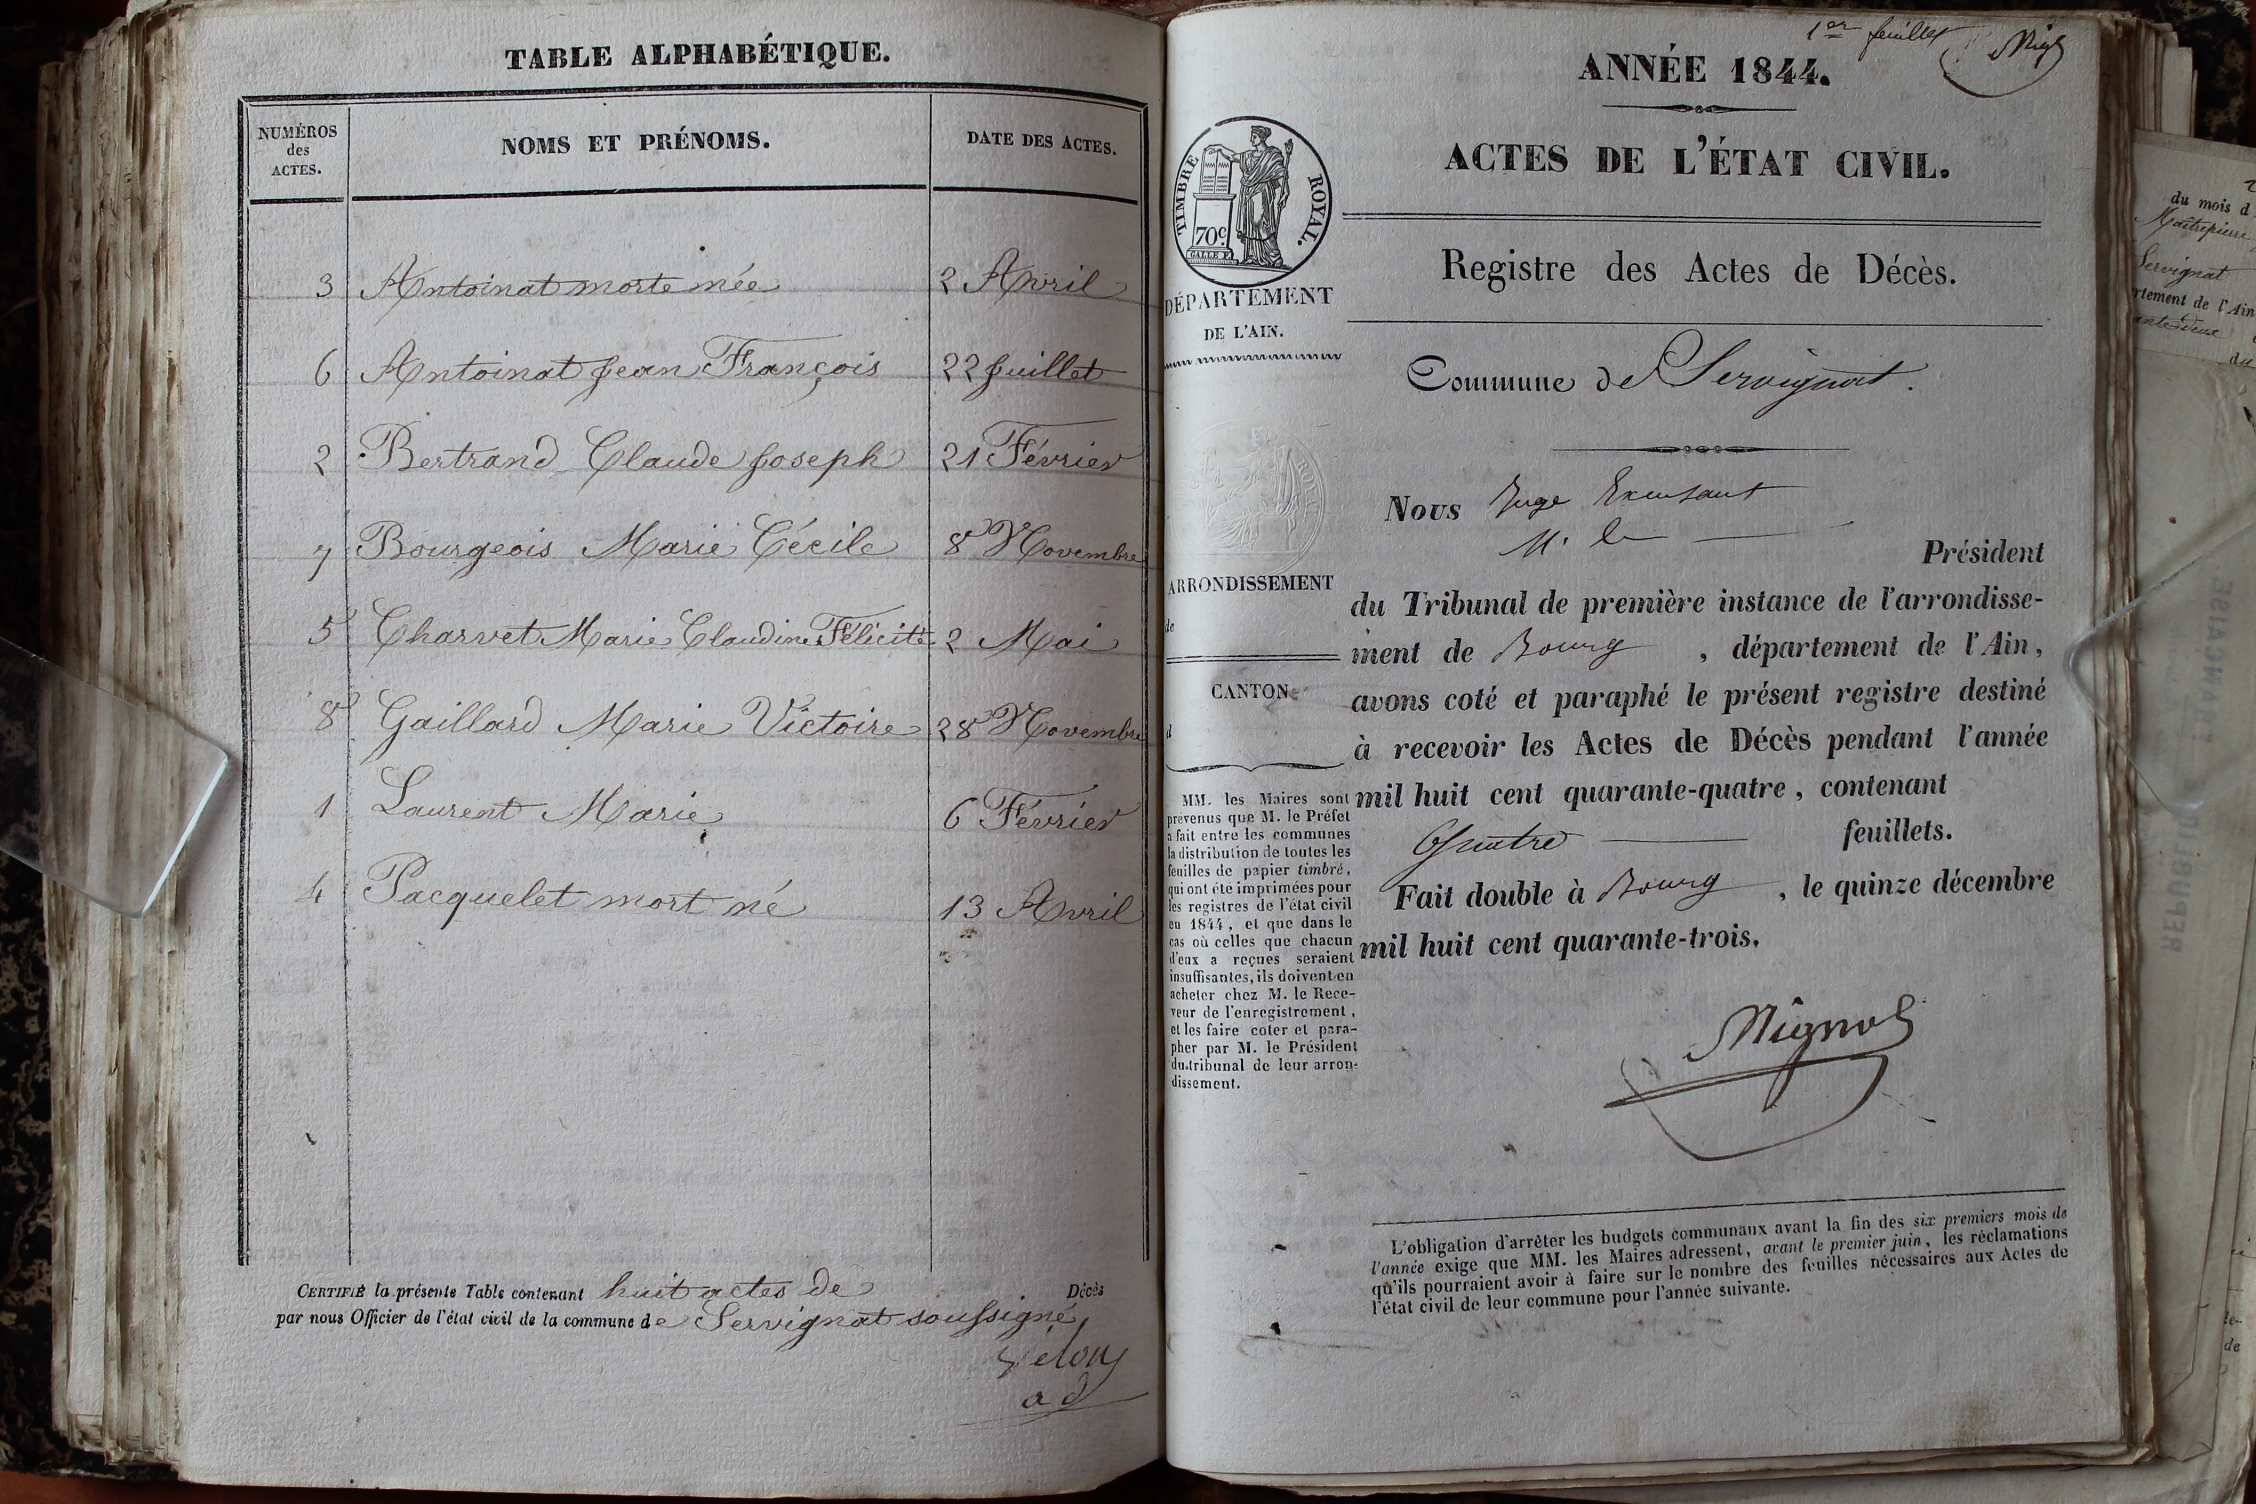 TABLE ALPHABÉTIQUE.
NUMÉROS
des
ACTES.
NOMS ET PRÉNOMS.
DATE DES ACTES.
3 Antoinat morte née 2 Avril
6 Antoinat Jean François 22 Juillet
2 Bertrand Claude Joseph 21 Février
7 Bourgeois Marie Cécile 8 Novembre
5 Charvet Marie Claudine Félicité 2 Mai
8 Gaillard Marie Victoire 28 Novembre
1 Laurent Marie 6 Février
4 Pacquelet mort né 13 Avril
CERTIFIÉ la présente Table contenant huit actes de Décès
par nous Officier de l'état civil de la commune de Servignat soussigné
ad
1er feuillet
ANNÉE 1844.
ACTES DE L'ÉTAT CIVIL.
TIMBRE ROYAL.
70c
Registre des Actes de Décès.
DÉPARTEMENT
DE L'AIN.
Commune de Servignat.
Nous Juge
M. le
Président
ARRONDISSEMENT
de
CANTON
d
du Tribunal de première instance de l'arrondisse-
ment de Bourg, département de l'Ain,
avons coté et paraphé le présent registre destiné
à recevoir les Actes de Décès pendant l'année
mil huit cent quarante-quatre, contenant
Quatre feuillets.
Fait double à Bourg, le quinze décembre
mil huit cent quarante-trois.
Mignot
MM. les Maires sont
prévenus que M. le Préfet
a fait entre les communes
la distribution de toutes les
feuilles de papier timbré,
qui ont été imprimées pour
les registres de l'état civil
en 1844, et que dans le
cas où celles que chacun
d'eux a reçues seraient
insuffisantes, ils doivent en
acheter chez M. le Rece-
veur de l'enregistrement,
et les faire coter et para-
pher par M. le Président
du tribunal de leur arron-
dissement.
L'obligation d'arrêter les budgets communaux avant la fin des six premiers mois de
l'année exige que MM. les Maires adressent, avant le premier juin, les réclamations
qu'ils pourraient avoir à faire sur le nombre des feuilles nécessaires aux Actes de
l'état civil de leur commune pour l'année suivante.
du mois d
Servignat
rtement de l'Ain
du
de